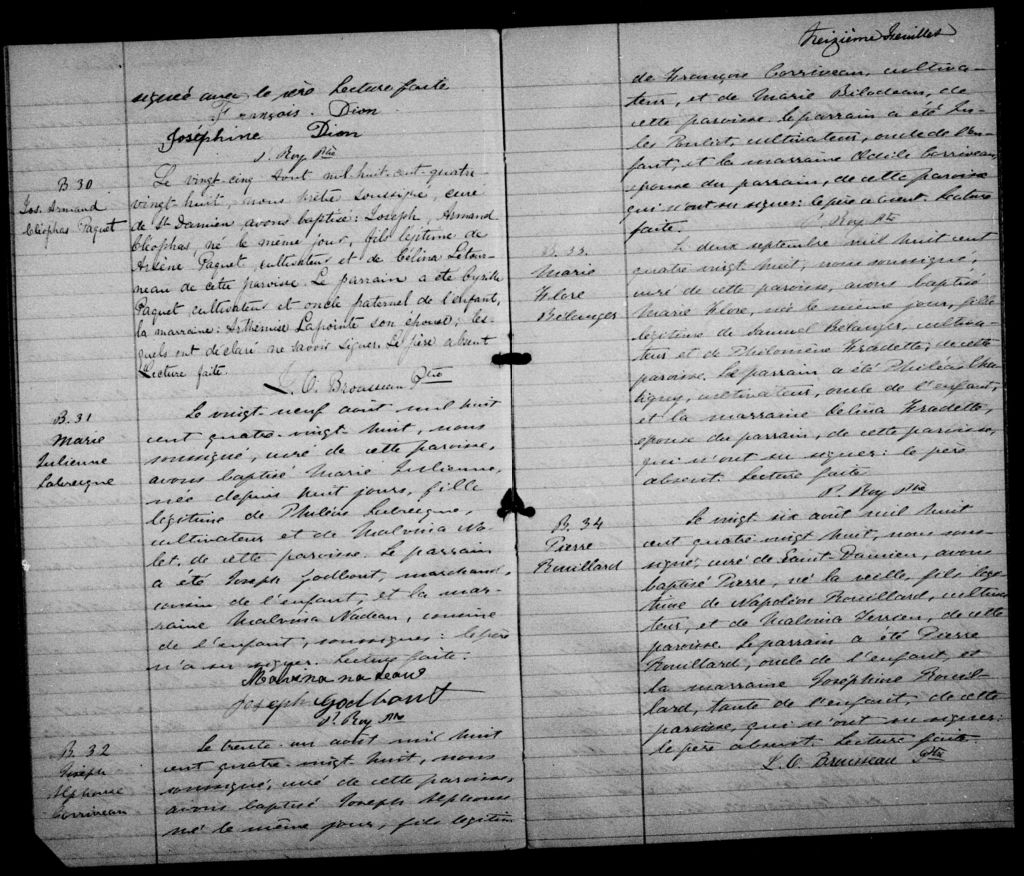 signée avec le père Lecture faite
François. Dion
Joséphine Dion
P. Roy Ptre
B. 30
Jos. Armand
Cléophas Paquet
Le vingt-cinq août mil huit-cent-quatre-
vingt-huit, nous prêtre soussigné, curé
de St Damien avons baptisé: Joseph, Armand
Cléophas, né le même jour, fils légitime de
Arsène Paquet, cultivateur et de Célina Létour-
neau de cette paroisse. Le parrain a été Cyrille
Paquet cultivateur et oncle paternel de l'enfant,
la marraine: Arthémise Lapointe son épouse; les-
quels ont déclaré ne savoir signer. Le père absent
Lecture faite.
L. O. Brousseau Ptre
B. 31
Marie
Julienne
Labreigne
Le vingt-neuf août mil huit
cent quatre-vingt huit, nous
soussigné, curé de cette paroisse,
avons baptisé Marie Julienne,
née depuis huit jours, fille
légitime de
cultivateur et de Malvina No-
let, de cette paroisse. Le parrain
a été Joseph Godbout, marchand,
cousin de l'enfant, et la mar-
raine Malvina Nadeau, cousine
de l'enfant, soussignés: le père
n'a su signer. Lecture faite.
Malvina nadeau
Joseph Godbout
P. Roy Ptre
B. 32
Joseph
Alphonse
Corriveau
Le trente-un août mil huit
cent quatre-vingt huit, nous
soussigné, curé de cette paroisse,
avons baptisé Joseph Alphonse
né le même jour, fils légitim
treizième feuillet
de François Corriveau, cultiva-
teur, et de Marie Bilodeau, de
cette paroisse. Le parrain a été Ju-
les Pouliot, cultivateur, oncle de l'en-
fant, et la marraine Corriveau,
épouse du parrain, de cette paroisse
qui n'ont su signer: le père absent. Lecture
faite.
P. Roy Ptre
B. 33.
Marie
Flore
Bélanger
Le deux septembre mil huit cent
quatre vingt huit, nous soussigné,
curé de cette paroisse, avons baptisé
Marie Flore, née le même jour, fille
légitime de Samuel Bélanger, cultiva-
teur et de Philomène Fradette, de cette
paroisse. Le parrain a été Philéas Cha-
tigny, cultivateur, oncle de l'enfant,
et la marraine Célina Fradette,
épouse du parrain, de cette paroisse,
qui n'ont su signer: le père
absent. Lecture faite
P. Roy Ptre
B. 34
Pierre
Rouillard
Le vingt six août mil huit
cent quatre vingt huit, nous sous-
signé, curé de Saint-Damien, avons
baptisé Pierre, né la veille, fils légi-
time de Napoléon Rouillard, cultiva-
teur, et de Malvina Terrien, de cette
paroisse. Le parrain a été Pierre
Rouillard, oncle de l'enfant, et
la marraine Joséphine Rouil-
lard, tante de l'enfant, de cette
paroisse, qui n'ont su signer:
le père absent. Lecture faite.
L. O. Brousseau Ptre